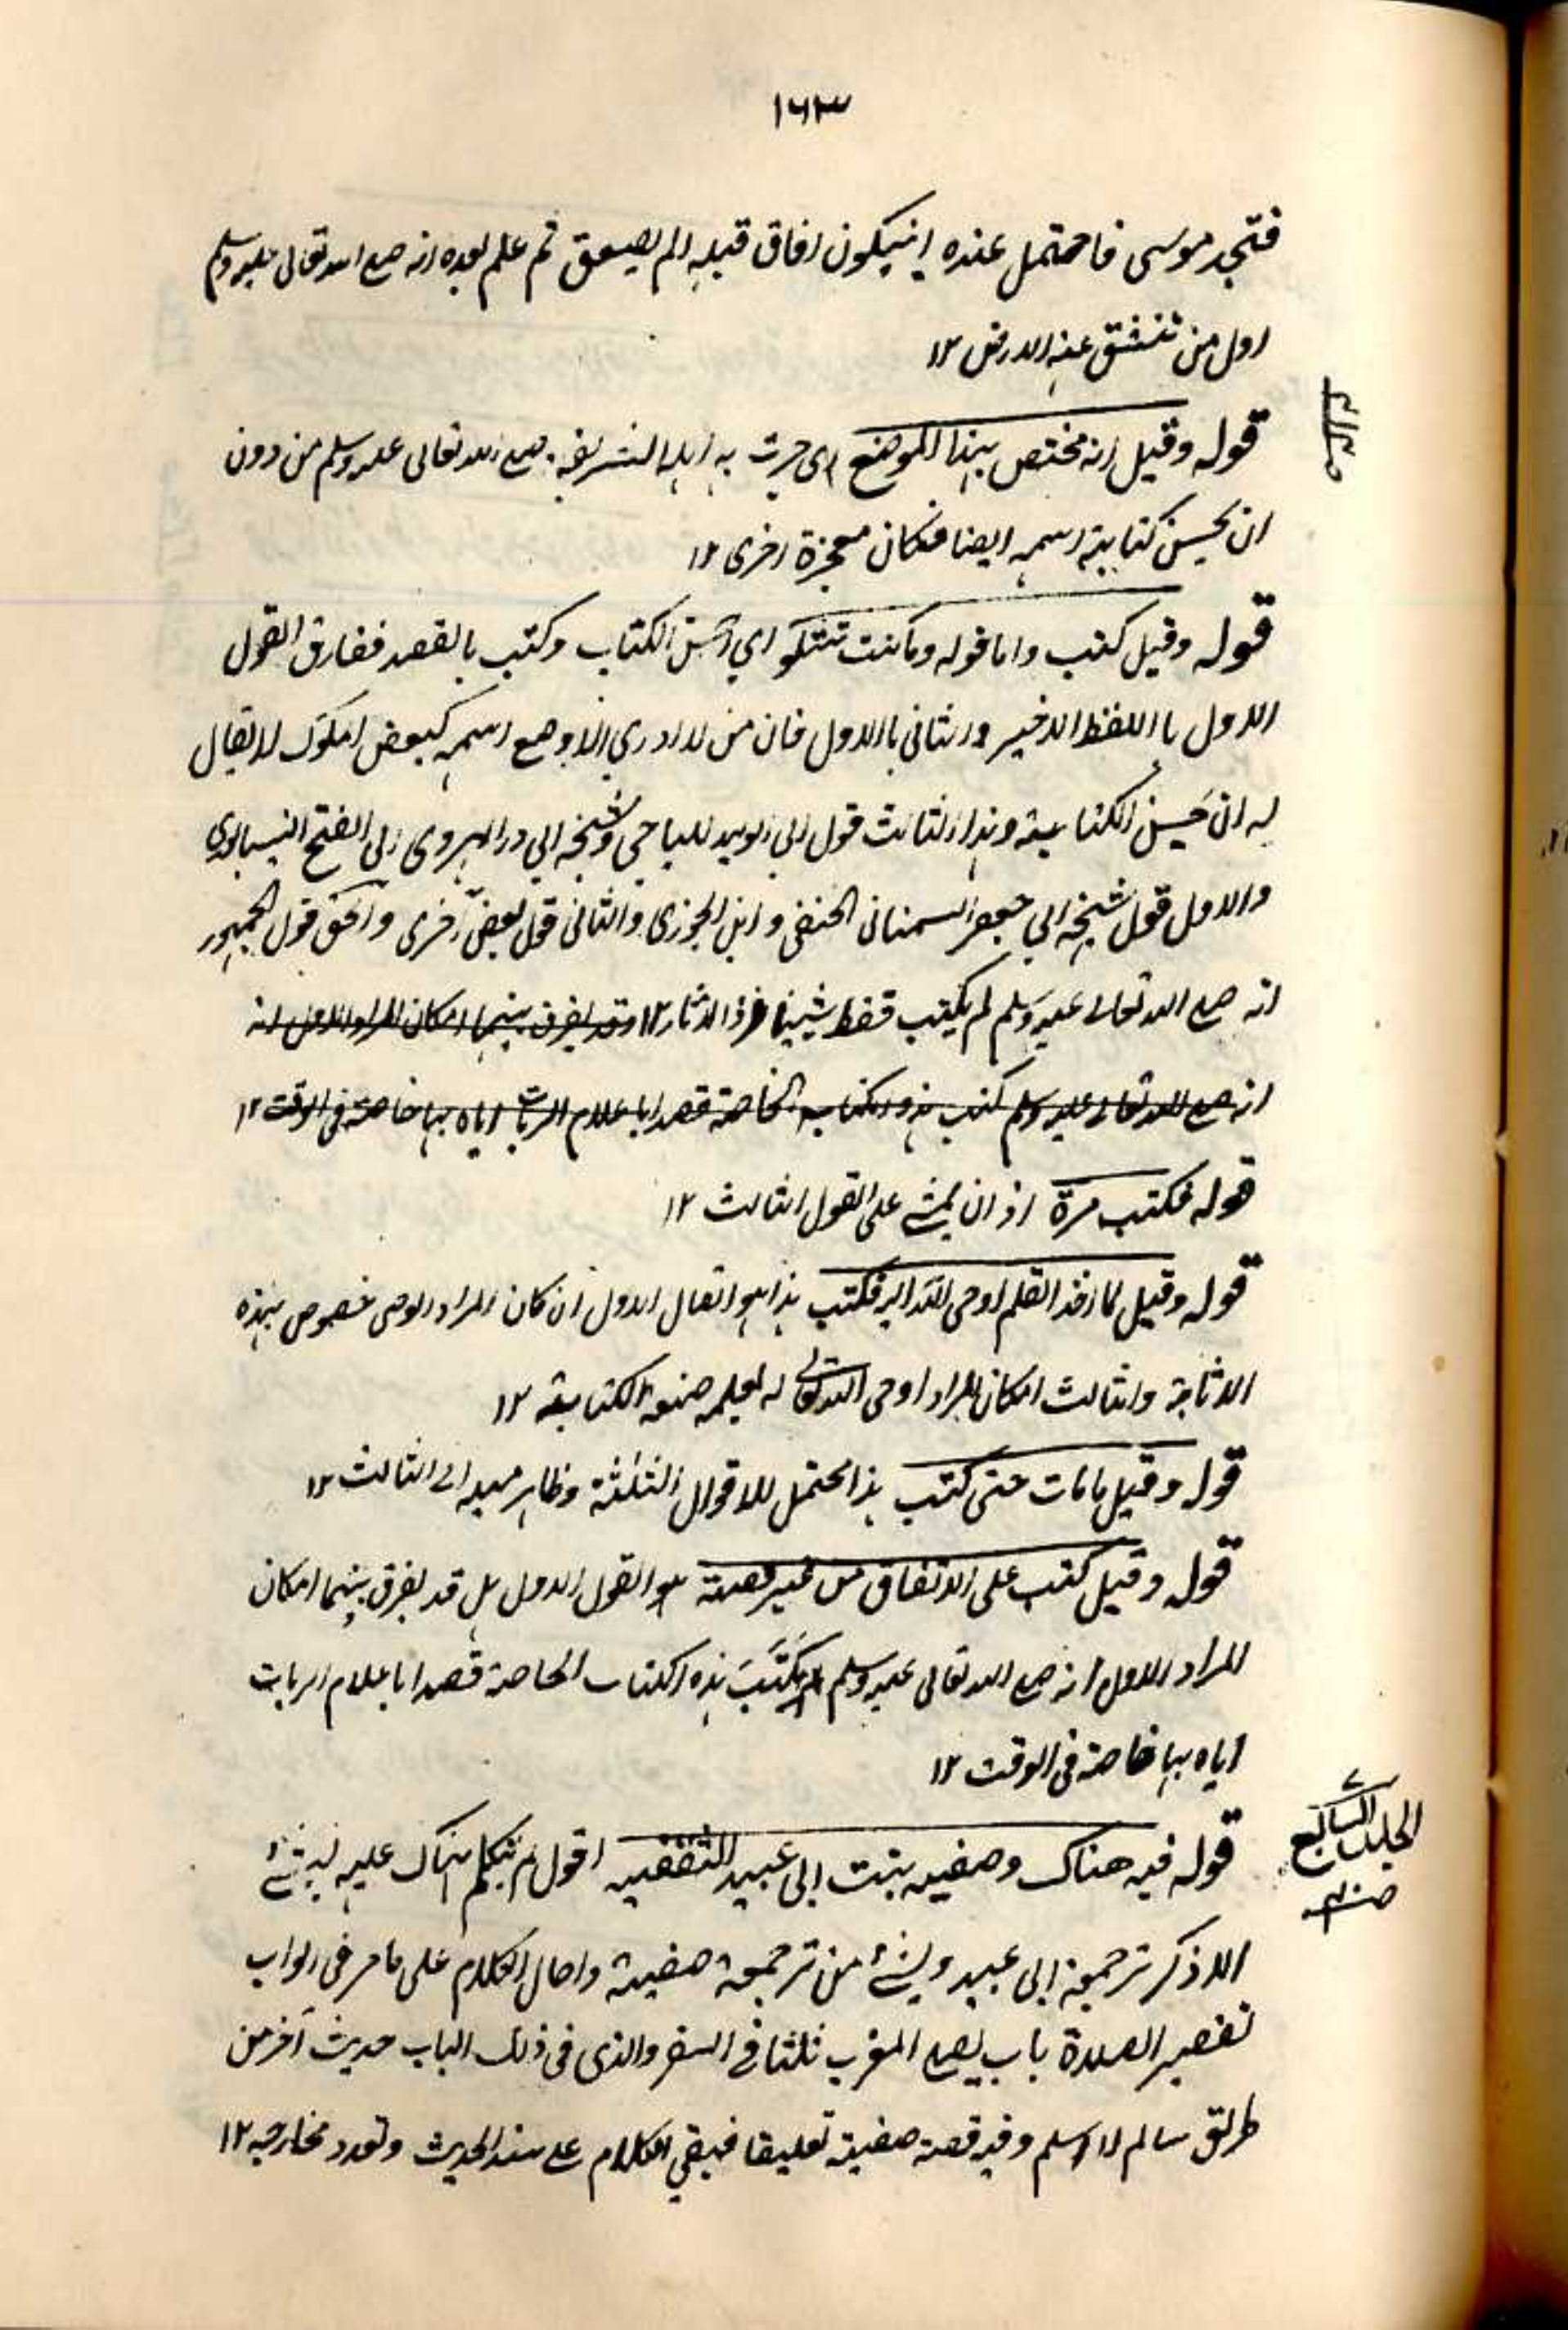 ١٦٣
فتجد موسى فاحتمل عنده ان يكون افاق قبله الم يصعق ثم علم بعده انه صلى الله تعالى عليه وسلم
اول من تنشق عنه الارض ١٢
قوله وقيل انه مختص بهذا الموضع اى جرت به يده الشريفة صلى الله تعالى عليه وسلم من دون
ان يحسن كتابة اسمه ايضا فكان معجزة اخرى ١٢
قوله وقيل كتب واما قوله وما كنت تتلو اي احسن الكتاب وكتب بالقصد ففارق القول
الاول با اللفظ الاخير والثانى باالاول فان من لا يدري الا وضع اسمه كبعض الملوك لا يقال
له ان حسن الكتابة وهذا الثالث قول ابي الوليد للباجي وشيخه ابي ذر الهروى ابى الفتح النيسابوري
والاول قول شيخه ابي جعفر السمنانى الحنفى وابن الجوزى والثانى قول بعض اخرى والحق قول الجمهور
انه صلى الله تعالى عليه وسلم لم يكتب قط شيئا ١٢ وقد يفرق بينهما امكان المراد الاول انه
انه صلى الله تعالى عليه وسلم كتب هذه الكتابة الخاصة قصدا باعلام الرب اياه بها خاصة فى الوقت ١٢
قوله فكتب مرة على القول الثالث ١٢
قوله وقيل لما اخذ القلم اوحى الله اليه فكتب هذا هو القال الاول ان كان المراد الوحى خصوص بهذه
والثالث امكان المراد اوحى الله تعالى له لعلمه صنعة الكتابة ١٢
قوله وقيل مامات حتى كتب هذا محتمل للاقوال الثلثة وظاهر ميله الى الثالث ١٢
قوله وقيل كتب على الاتفاق من غير قصد هو القول الاول بل قد يفرق بينهما امكان
المراد الاول انه صلى الله تعالى عليه وسلم كتب هذه الكتاب الخاصة قصدا باعلام الرب
اياه بها خاصة فى الوقت ١٢
الجلد السابع
قوله فيه هناك وصفيه بنت ابى عبيد الثقفيه اقول لم يتكلم هناك عليه بشئ
الا ذكر ترجمة ابى عبيد وشئ من ترجمة صفية واحال الكلام على ما مر فى ابواب
تقصير الصلاة باب يصلى المغرب ثلثا فى السفر والذى فى ذلك الباب حديث آخر من
طريق سالم لا اسلم وفيه قصة صفية تعليقا فبقي الكلام على سند الحديث وتعدد مخارجه ١٢